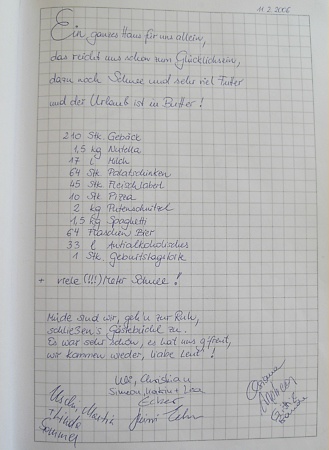 11.2.2006
Ein ganzes Haus für uns allein,
das reicht uns schon zum Glücklichsein,
dazu noch Schnee und sehr viel Futter
und der Urlaub ist in Butter!
210 Stk. Gebäck
1,5 kg Nutella
17 l Milch
64 Stk. Palatschinken
45 Stk. Fleischlaberl
10 Stk. Pizza
2 kg Putenschnitzel
1,5 kg Spaghetti
64 Flaschen Bier
33 l Antialkoholisches
1 Stk. Geburtstagstorte
+ viele (!!!) Meter Schnee!
Müde sind wir, geh'n zur Ruh,
schließen's Gästebüchl zu.
Es war sehr schön, es hat uns g'freut,
wir kommen wieder, liabe Leut'!
Uli, Christian
Simeon,